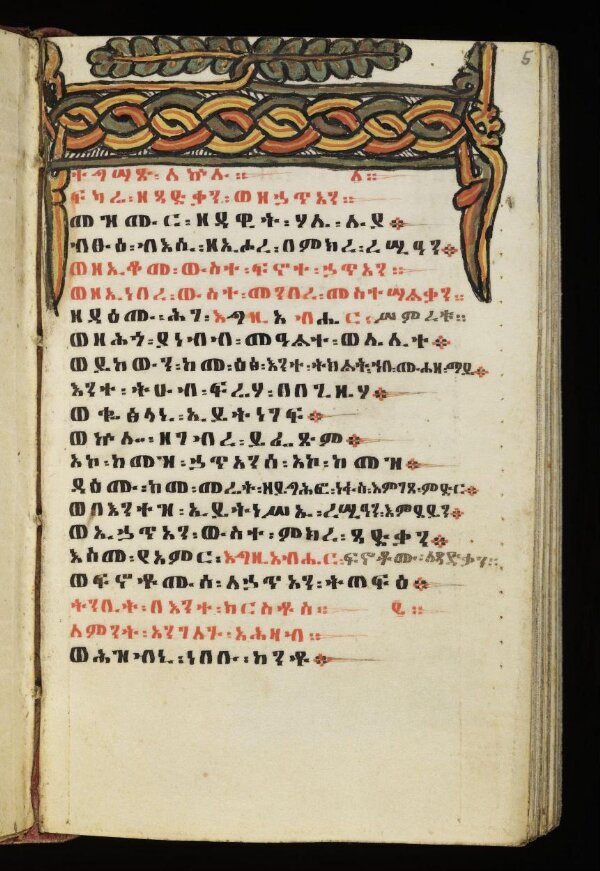 5
ተግሣጽ፡ለኵሉ። ፩።
ፍካሬ፡ዘጻድቃን፡ወዘኃጥአን።
መዝሙር፡ዘዳዊት፡ሃሌ፡ሉያ።
ብፁዕ፡ብእሲ፡ዘኢሖረ፡በምክረ፡ረሢዓን።
ወዘኢቆመ፡ውስተ፡ፍኖተ፡ኃጥአን።
ወዘኢነበረ፡ውስተ፡መንበረ፡መስተሣልቃን።
ዘዳዕሙ፡ሕገ፡እግዚአብሔር፡ሥምረቱ።
ወዘሕጎ፡ያነብብ፡መዓልተ፡ወሌሊተ።
ወይከውን፡ከመ፡ዕፅ፡እንተ፡ትክልት፡ኀበ፡ሙሐዘ፡ማይ።
እንተ፡ትሁብ፡ፍሬሃ፡በበጊዜሃ።
ወቈፅላኒ፡ኢይትነገፍ።
ወኵሎ፡ዘገብረ፡ይፌጽም።
አኮ፡ከመዝ፡ኃጥአንሰ፡አኮ፡ከመዝ።
ዳዕሙ፡ከመ፡መሬት፡ዘይግሕፎ፡ነፋስ፡እምገጸ፡ምድር።
ወበእንተዝ፡ኢይትነሥኡ፡ረሢዓን፡እምደይን።
ወኢኃጥአን፡ውስተ፡ምክረ፡ጻድቃን።
እስመ፡ያአምር፡እግዚአብሔር፡ፍኖቶሙ፡ለጻድቃን።
ወፍኖቶሙሰ፡ለኃጥአን፡ትጠፍዕ።
ትንቢት፡በእንተ፡ክርስቶስ። ፪።
ለምንት፡አንገለጉ፡አሕዛብ።
ወሕዝብኒ፡ነበቡ፡ከንቶ።